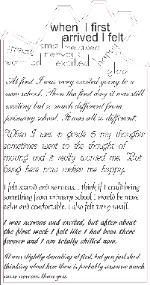 when I first
arrived I felt
At first I was very excited going to a
new school. Then the first day it was still
exciting but so much different from
primary school. It was all so different.
When I was in grade 6 my thoughts
sometimes went to the thought of
moving and it really worried me. But
being here now makes me happy.
I felt scared and nervous. I think if I could bring
something from primary school I would be more
calm and comfortable. I also felt very small.
I was nervous and excited, but after about
the first week I felt like I had been there
forever and I am totally chilled now.
It was slightly daunting at first, but you just start
thinking about how there is probably someone much
more nervous than you.